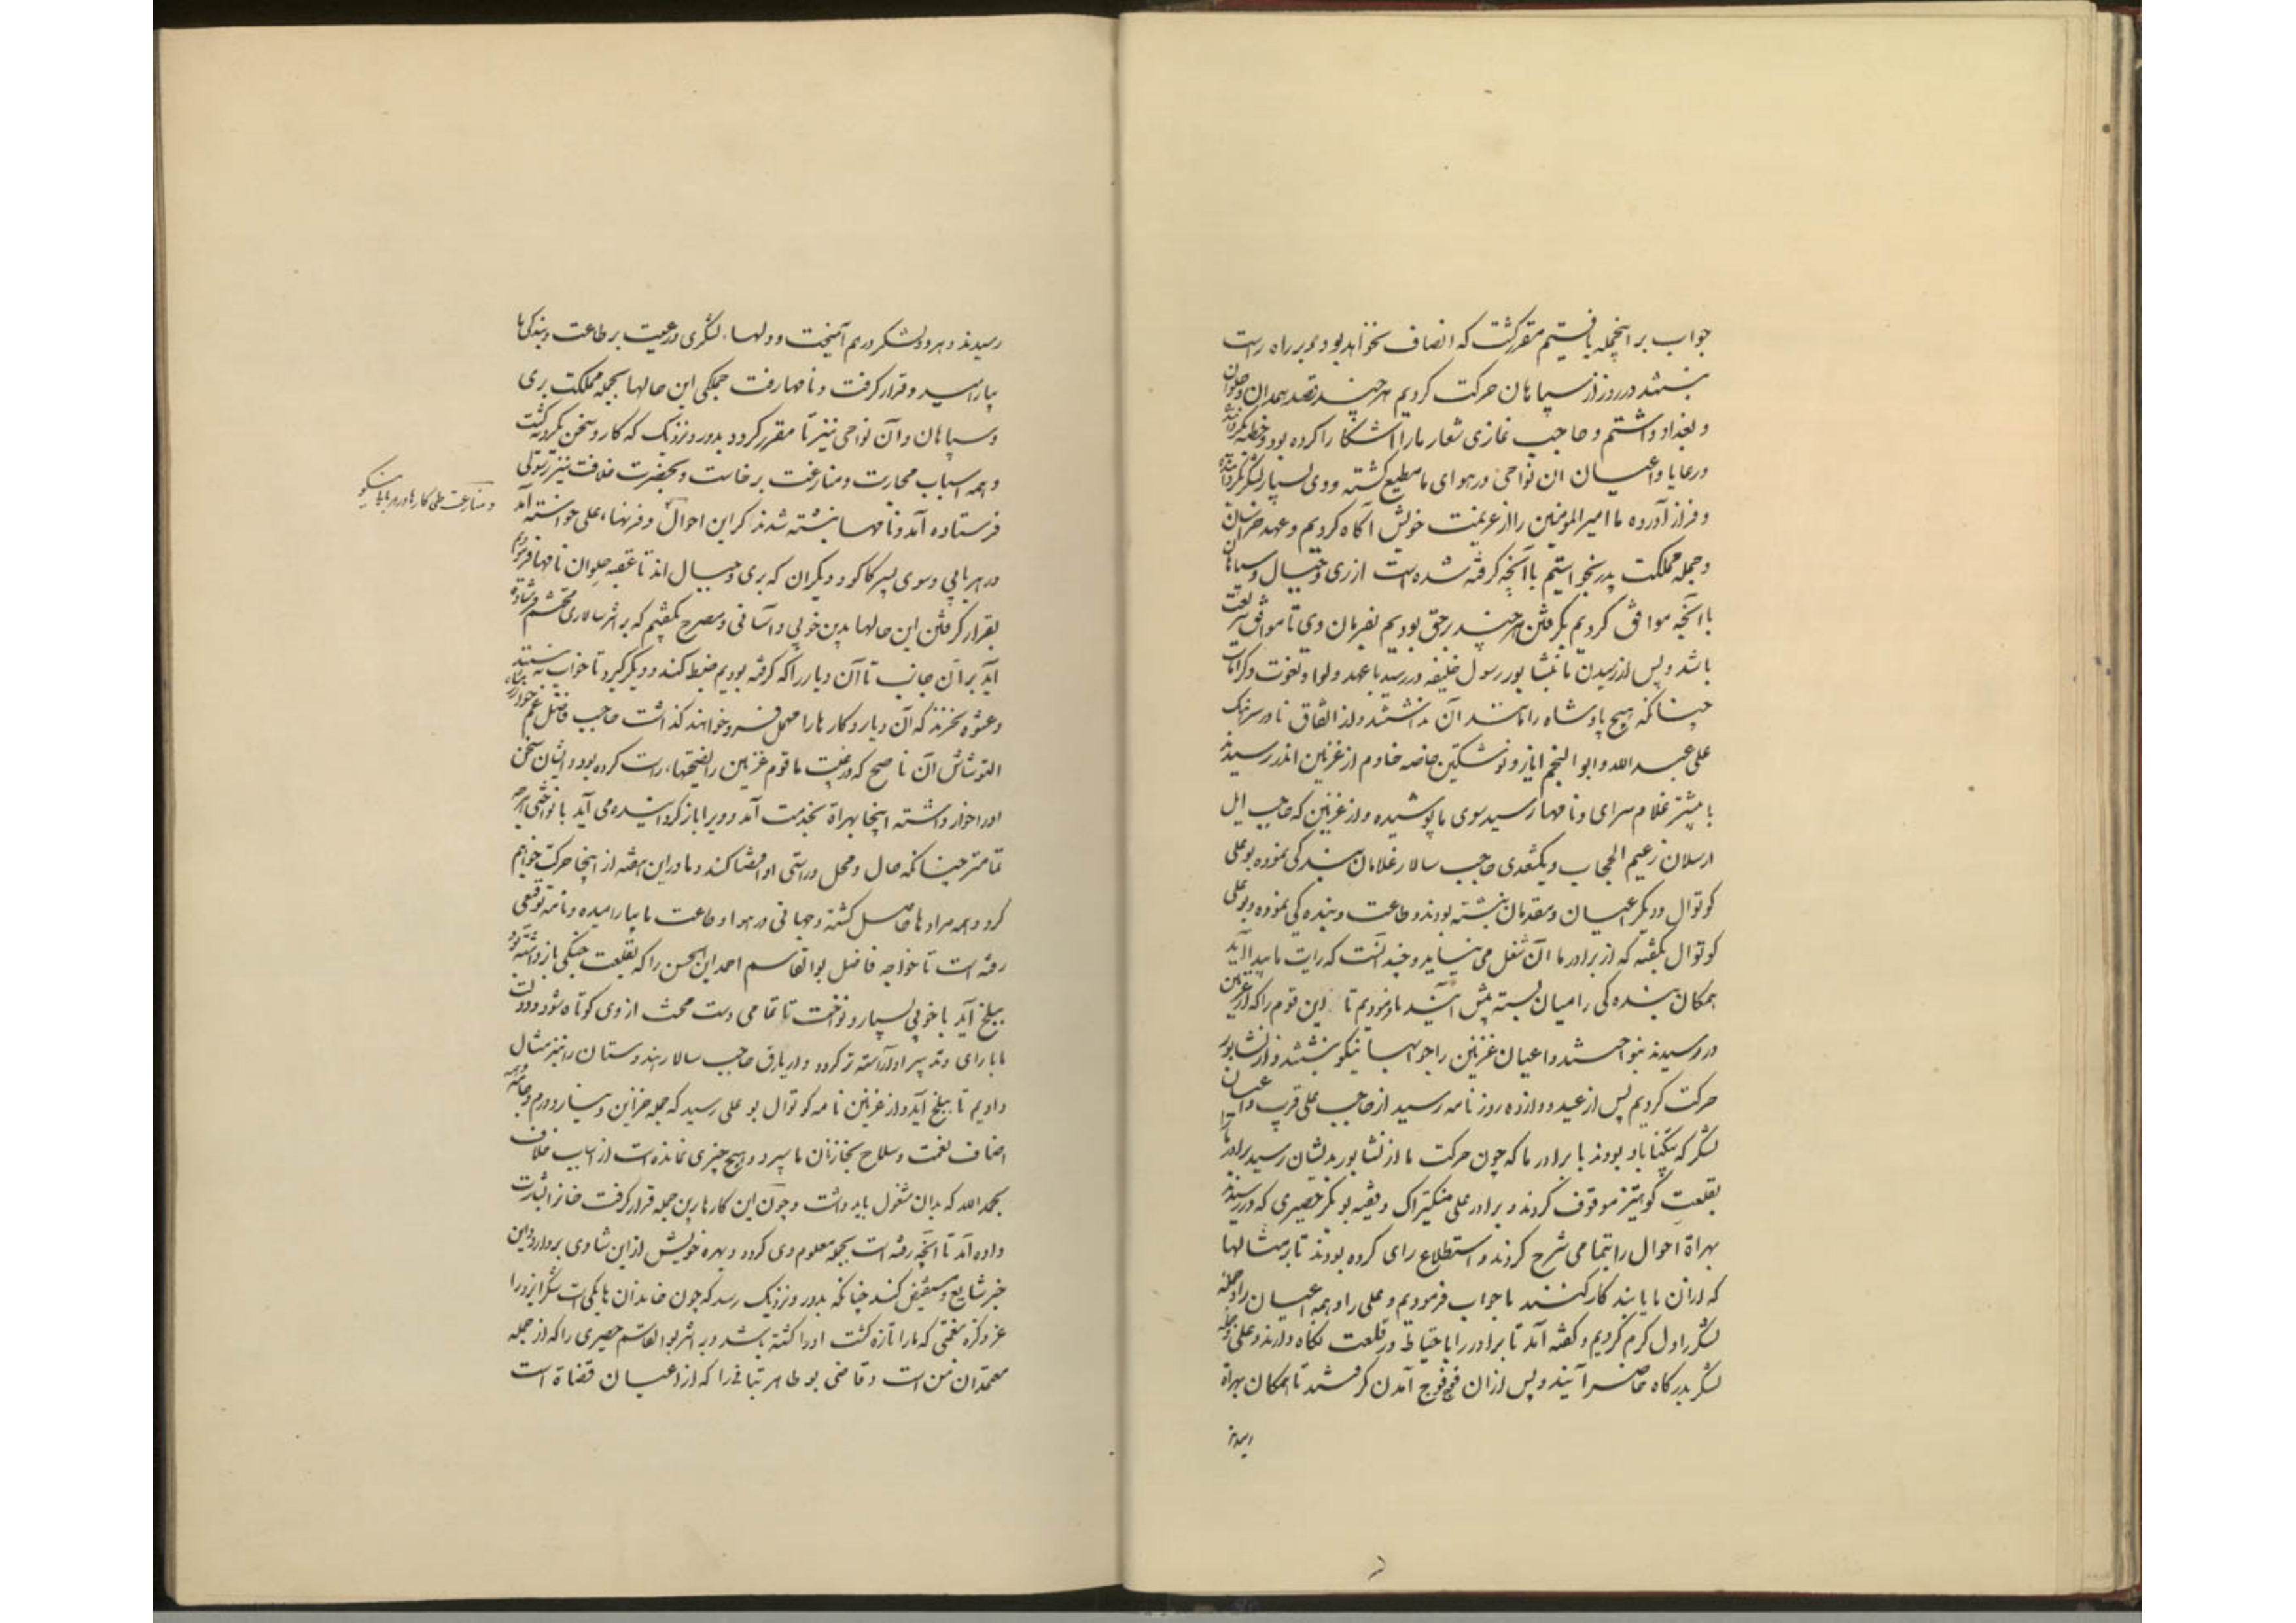 جواب بر اینجمله یافتیم مقرر گشت که انصاف نخواهد بود و بر راه راست
نیستند در روز از سپاهان حرکت کردیم هر چند قصد همدان و حلوان
و بغداد داشتیم و حاجب غازی شعار ما را آشکارا کرده بود و خطبه بگردانیده
و رعایا و اعیان ان نواحی در هوای ما مطیع گشته و وی بسیار لشکر بگردانیده
و فراز آورده ما امیرالمومنین را از عزیمت خویش آگاه کردیم و عهد خراسان
و جمله مملکت پدر بخواستیم با آنچه گرفته شده است از ری و جبال و سپاهان
با آنچه موافق کردیم بگرفتن هر چند بر حق بودیم بفرمان وی تا موافق شریعت
باشد و پس از رسیدن ما بنشابور رسول خلیفه در رسید با عهد و لوا و نعوت و کرامات
چنانکه هیچ پادشاه را مانند آن نداشتند و از اتفاق نادر سرهنک
علی عبدالله و ابوالنجم ایاز و نوشتکین خاصه خادم از غزنین اندر رسیدند
با بیشتر غلام سرای و نامها رسید سوی ما پوشیده و از غزنین که حاجب ایل
ارسلان زعیم الحجاب و بکتغدی حاجب سالار غلامان بندگی نموده بوعلی
کوتوال و دیگر اعیان و مقدمان نبشته بودند و طاعت و بنده گی نموده و بوعلی
کوتوال بگفته که از برادر ما آن شغل می نیاید و چندانست که رایت ما پیدا آید
همکان بنده گی را میان بسته پیش آیند ما فرمودیم تا این قوم را که از غزنین
در رسیدند بنواختند و اعیان غزنین را جوابها نیکو نبشتند و از نشابور
حرکت کردیم پس از عید دوازده روز نامه رسید از حاجب علی قریب و اعیان
لشکر که بتکیناباد بودند با برادر ما که چون حرکت ما از نشابور بدیشان رسید برادر ما را
بقلعت کوهتیز موقوف کردند و برادر علی منکیتراک و فقیه بوبکر حصیری که در رسیدند
بهراة احوال را بتمامی شرح کردند و استطلاع رای کرده بودند تا بر مثالها
که از آن ما یابند کار کنند ما جواب فرمودیم و علی را و همه اعیان را و جمله
لشکر را دل گرم کردیم و گفته آمد تا برادر را با حتیاط در قلعت نگاه دارند و علی و جمله
لشکر بدرگاه حاضر آیند و پس از آن فوج فوج آمدن گرفتند تا همکان بهراة
رسیدند
رسیدند و هر دو لشکر در هم آمیخت و دلها، لشکری و رعیت بر طاعت و بندگی ما
بیارامید و قرار گرفت و نامها رفت جملگی این حالها بجمله مملکت بری
و سپاهان و آن نواحی نیز تا مقرر گردد بدور و نزدیک که کار و سخن یکرویه گشت
و همه اسباب محاربت و منازعت برخاست و بحضرت خلافت نیز رسولی
فرستاده آمد و نامها نبشته شدند که این احوال و فرمانها، عالی خواسته آمد
در هر بابی و سوی پسر کاکو و دیگران که بری و جبال اند تا عقبه حلوان نامها فرمودیم
بقرار گرفتن این حالها بدین خوبی و آسانی و مصرح بگفتیم که بر اثر سالاری محتشم فرستاده
آید بر آن جانب تا آن دیار را که گرفته بودیم ضبط کند و دیگر گیرد تا خواب نه بینند
و عشوه نخرند که آن دیار و کارها را مهمل فرو خواهند گذاشت حاجب فاضل عم خوارزمشاه
التونتاش آن ناصح که در غیبت ما قوم غزنین را نصیحتها، راست کرده بود و ایشان سخن
او را خوار داشته اینجا بهراة بخدمت آمد و ویرا باز گردانیده می آید با نواختی هر چه
تمامتر چنانکه حال و محل و راستی او اقتضا کند و ما در این هفته از اینجا حرکت خواهیم
کرد و همه مرادها حاصل گشته و جهانی در هوا و طاعت ما بیارامیده و نامه توقیعی
رفته است تا خواجه فاضل بوالقاسم احمد ابن الحسن را که بقلعت جنکی بازداشته بود
ببلخ آید با خوبی بسیار و نواخت تا تمامی دست محنت از وی کوتاه شود و دولت
ما با رای و تدبیر او آراسته تر گردد و اریارق حاجب سالار هندوستان را نیز مثال
دادیم تا ببلخ آید و از غزنین نامه کوتوال بوعلی رسید که جمله خزاین دینار و درم و جامه و همه
اصناف نعمت و سلاح بخازنان ما سپرد و هیچ چیزی نمانده است از اسباب خلاف
بحمدالله که بدان مشغول باید داشت و چون این کارها برین جمله قرار گرفت خان را بشارت
داده آمد تا آنچه رفته است بجمله معلوم وی گردد و بهره خویش از این شادی بردارد و این
خبر شایع و مستفیض کند چنانکه بدور و نزدیک رسد که چون خاندان ها یکی است شکر ایزد را
عز ذکره نعمتی که ما را تازه گشت او را گشته باشد و بر اثر بوالقاسم حصیری را که از جمله
معتمدان من است و قاضی بوطاهر تبانی را که از اعیان قضاة است